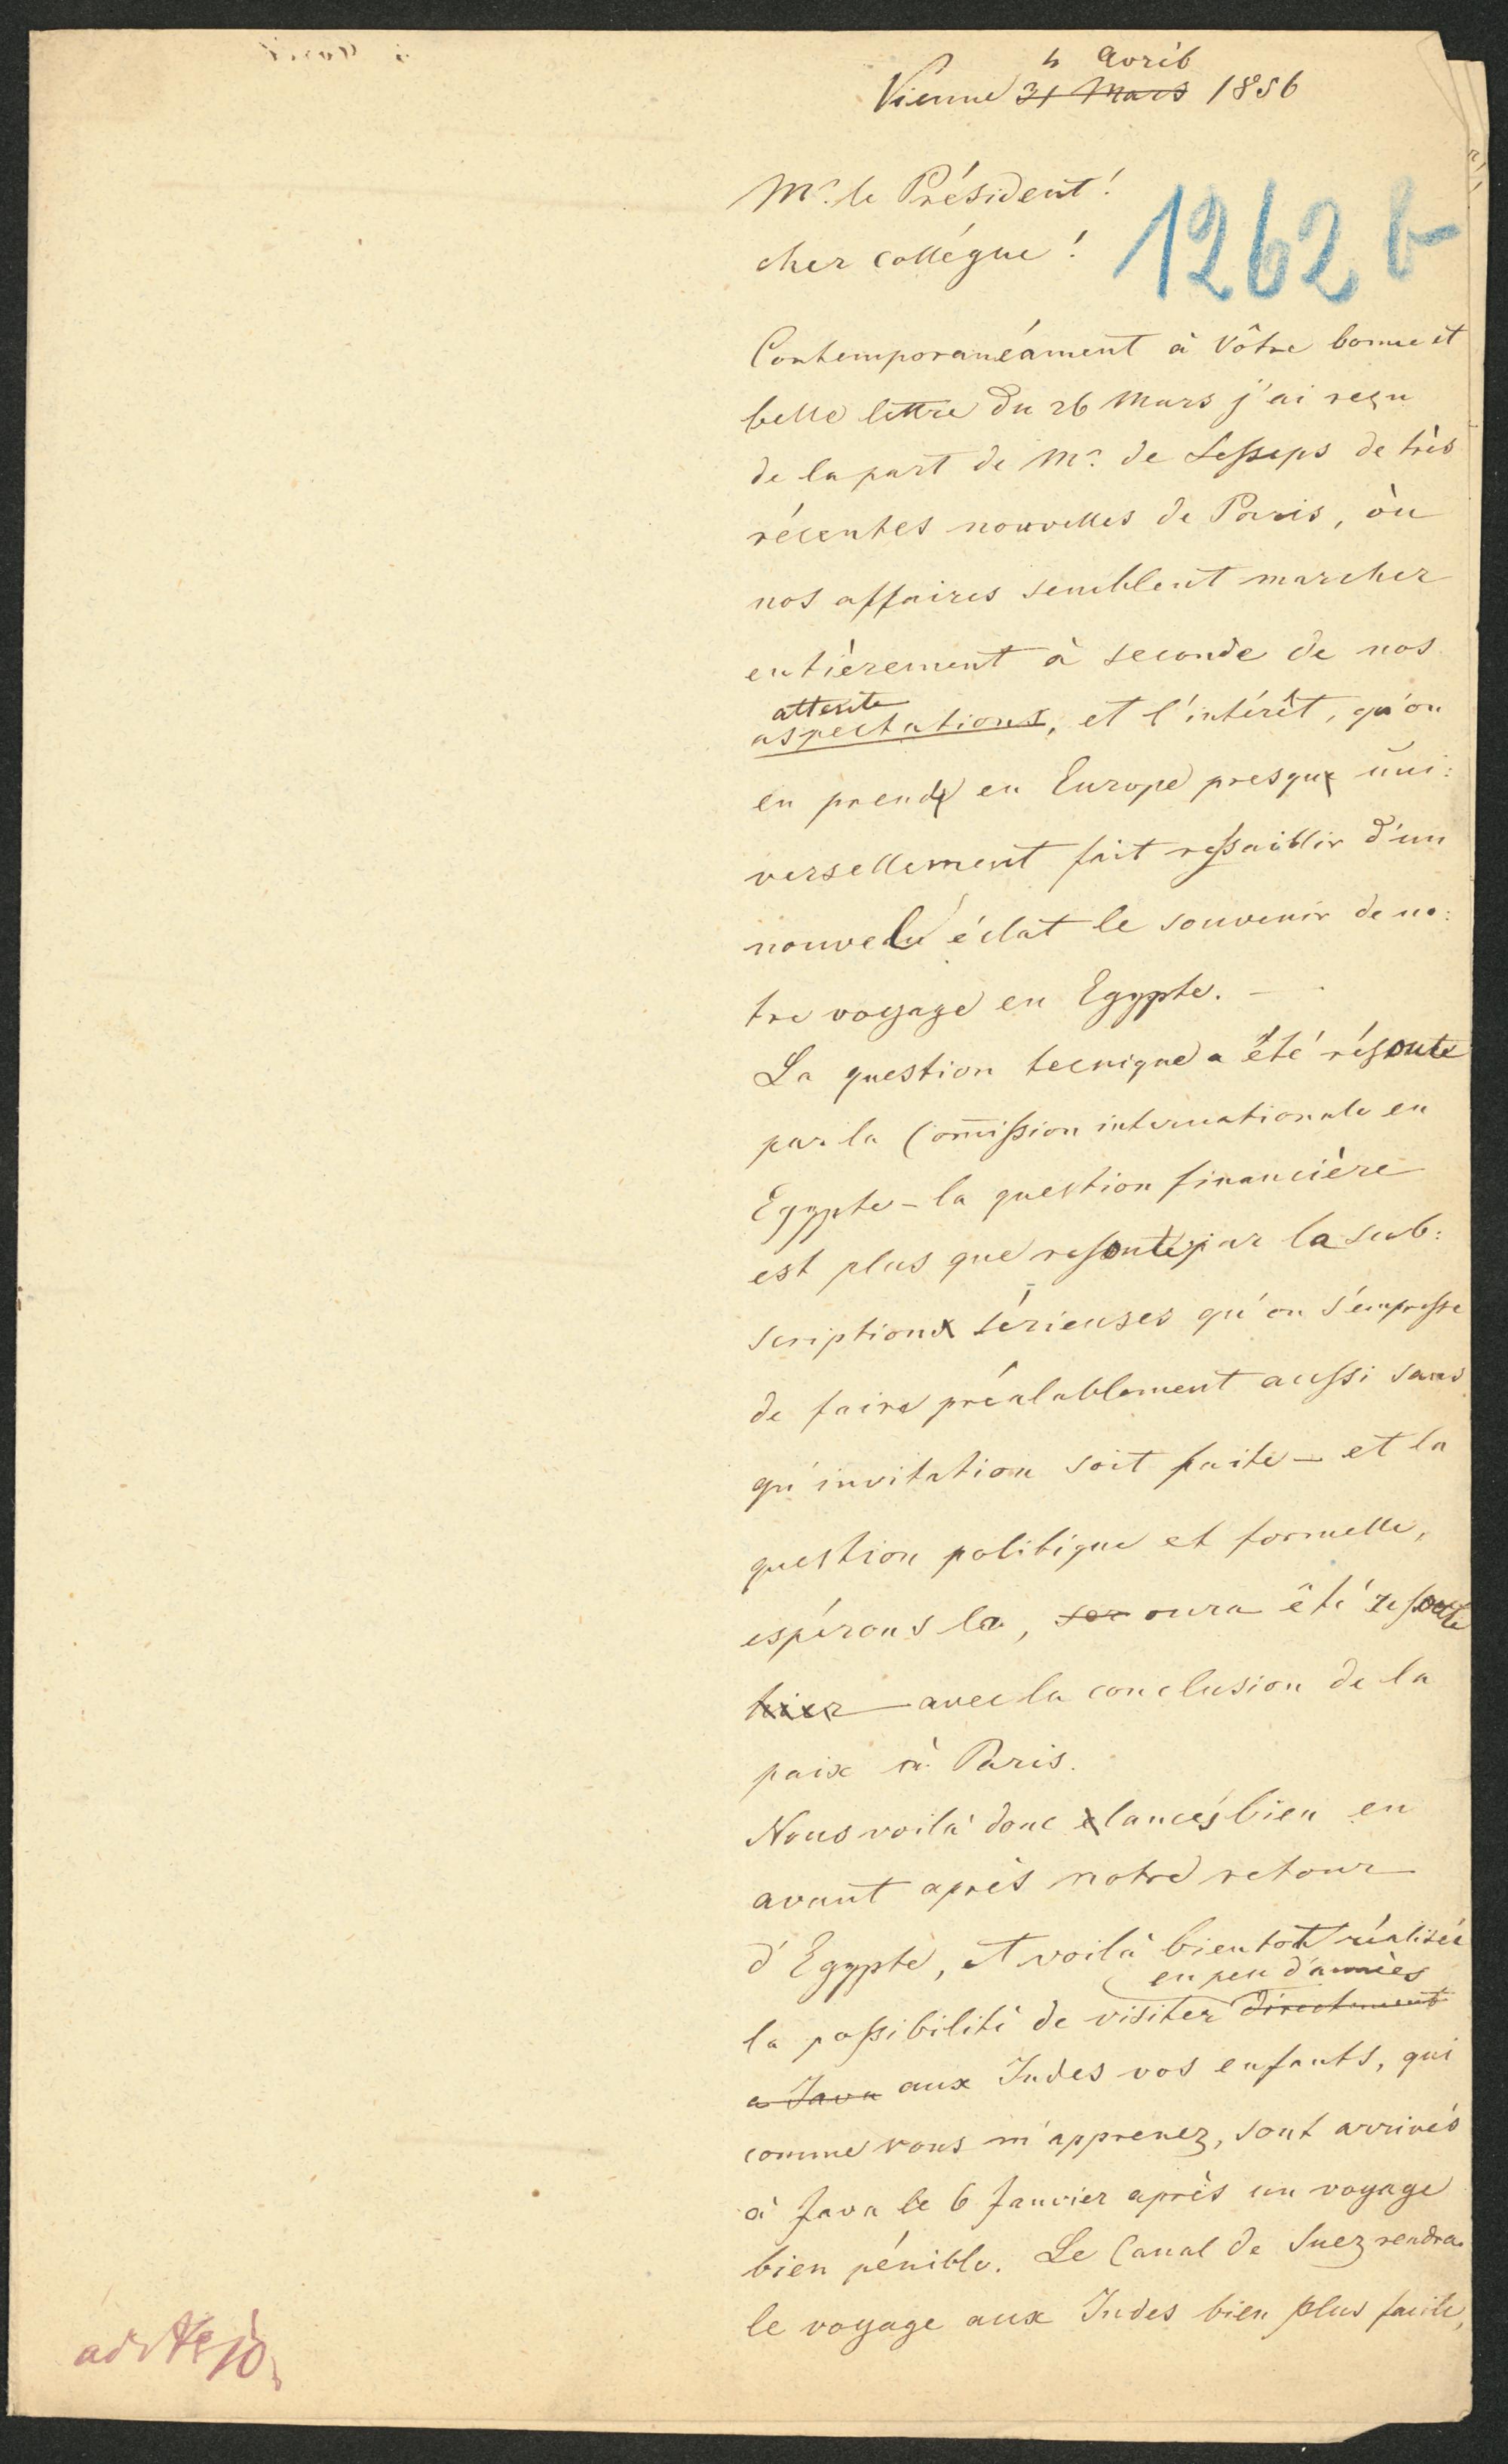 4 avril
Vienne 31 Mars 1856
Mr. le Président!
cher collégue!
1262 b
Contemporanéament à vôtre bonne et
belle lettre du 26 Mars j'ai reçu
de la part de Mr. de Lesseps de très
récentes nouvelles de Paris, òu
nos affaires semblent marcher
entièrement à seconde de nos
attente
aspectations, et l'intérêt, qu'on
en prend en Europe presque uni:
versellement fait ressaillir d'un
nouvel éclat le souvenir de no:
tre voyage en Egypte. —
La question tecnique a été résoute
par la Com̄ission internationale en
Egypte – la question financière
est plus que resoute par la sub:
scription sérieuses qu'on s'empresse
de faire préalablement aussi sans
qu'invitation soit faite – et la
question politique et formelle,
espérons le, ser aura été resoute
hier – avec la conclusion de la
paix à Paris.
Nous voilà donc elancés bien en
avant après notre retour
d'Egypte, et voilà bientot réalisée
en peu d'années
la possibilité de visiter directement
a Java aux Indes vos enfants, qui
comme vous m'apprenez, sont arrivés
à Java le 6 Janvier après un voyage
bien pénible. Le Canal de Suez rendra
le voyage aux Indes bien plus facile,